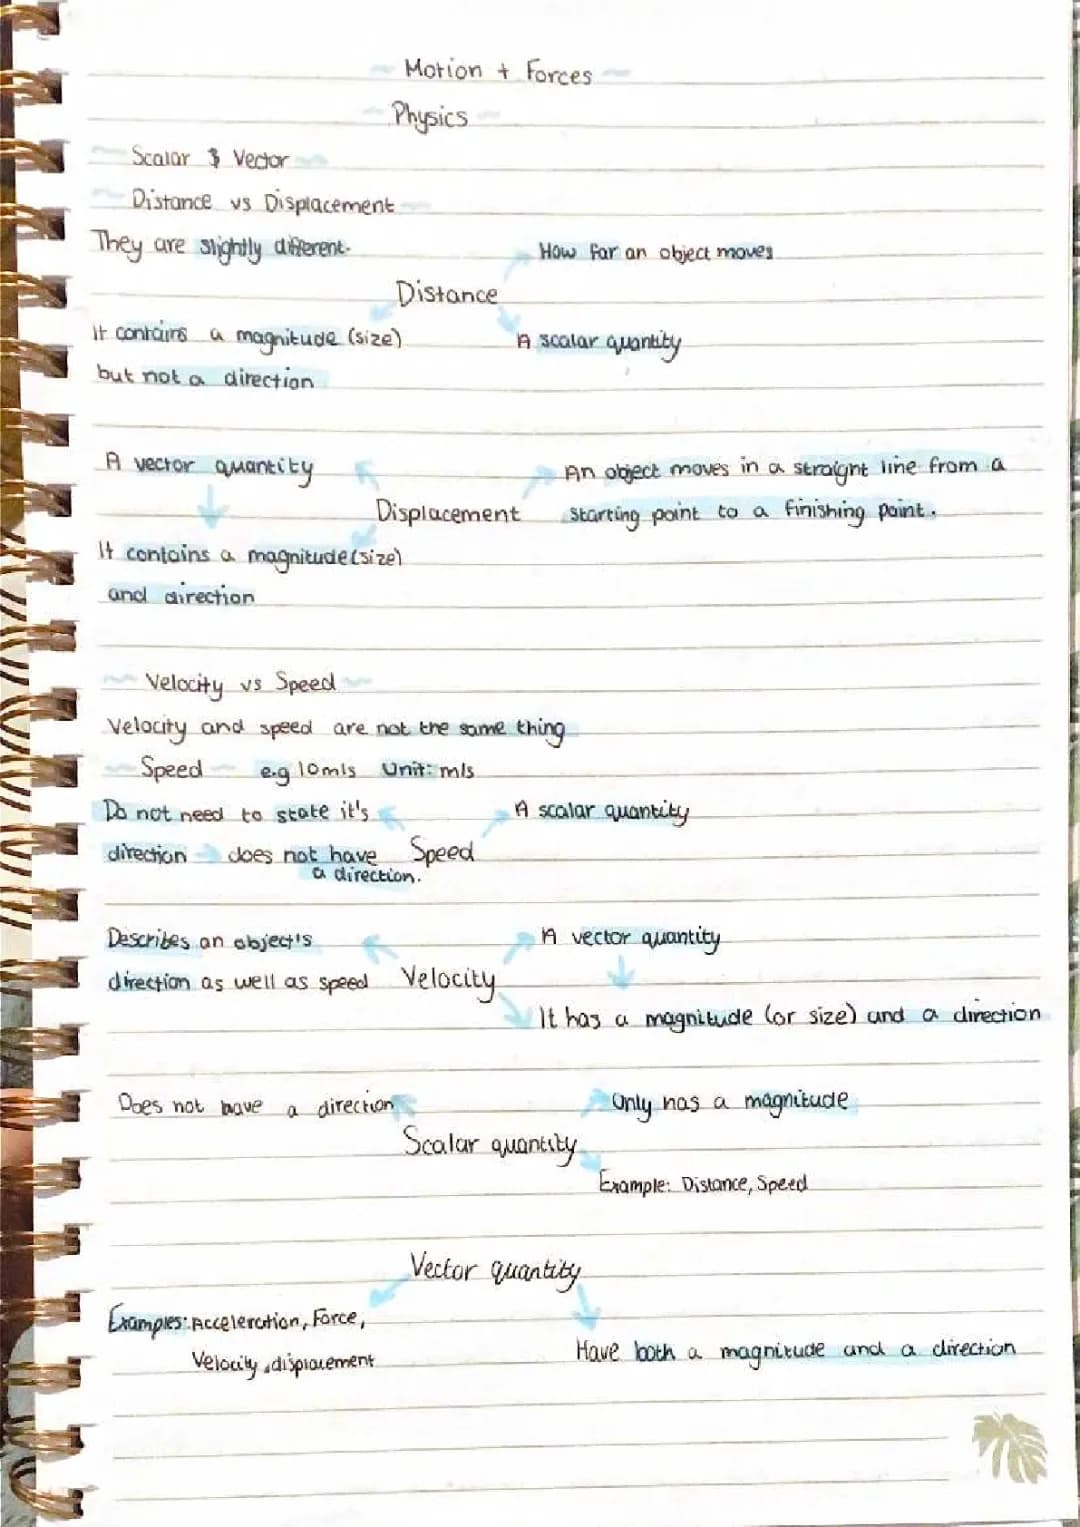 Motion + Forces
Physics
Scalar & Vector
Distance vs Displacement
They are slightly different.
How far an object moves
Distance
It contains a magnitude (size)
but not a direction
A scalar quantity
A vector quantity
An object moves in a straight line from a
Displacement
starting point to a finishing point.
It contains a magnitude (size)
and direction
Velocity vs Speed
Velocity and speed are not the same thing
Speed e.g 10m/s Unit: m/s
Do not need to state it's
A scalar quantity
direction does not have
a direction.
Speed
Describes an object's
A vector quantity
direction as well as speed
Velocity
It has a magnitude (or size) and a direction
Does not have a direction
Only has a magnitude
Scalar quantity
Example: Distance, Speed
Vector quantity
Examples: Acceleration, Force,
Velocity, displacement
Have both a magnitude and a direction